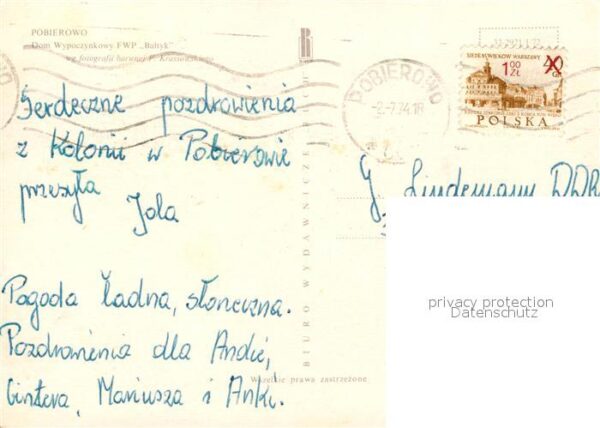 POBIEROWO
Dom Wypoczynkowy FWP „Bałtyk"
wg fotografii barwnej
Serdeczne pozdrowienia
z Kolonii w Pobierowie
przesyła
Jola
Pogoda ładna, słoneczna.
Pozdrowienia dla
Mariusza i Anki.
BIURO WYDAWNICZE
Wszelkie prawa zastrzeżone
R
POBIEROWO
-2.-7.74.18
SIEDEM WIEKÓW WARSZAWY
1,00
ZŁ
40
POLSKA
G. Lindemann DDR
privacy protection
Datenschutz